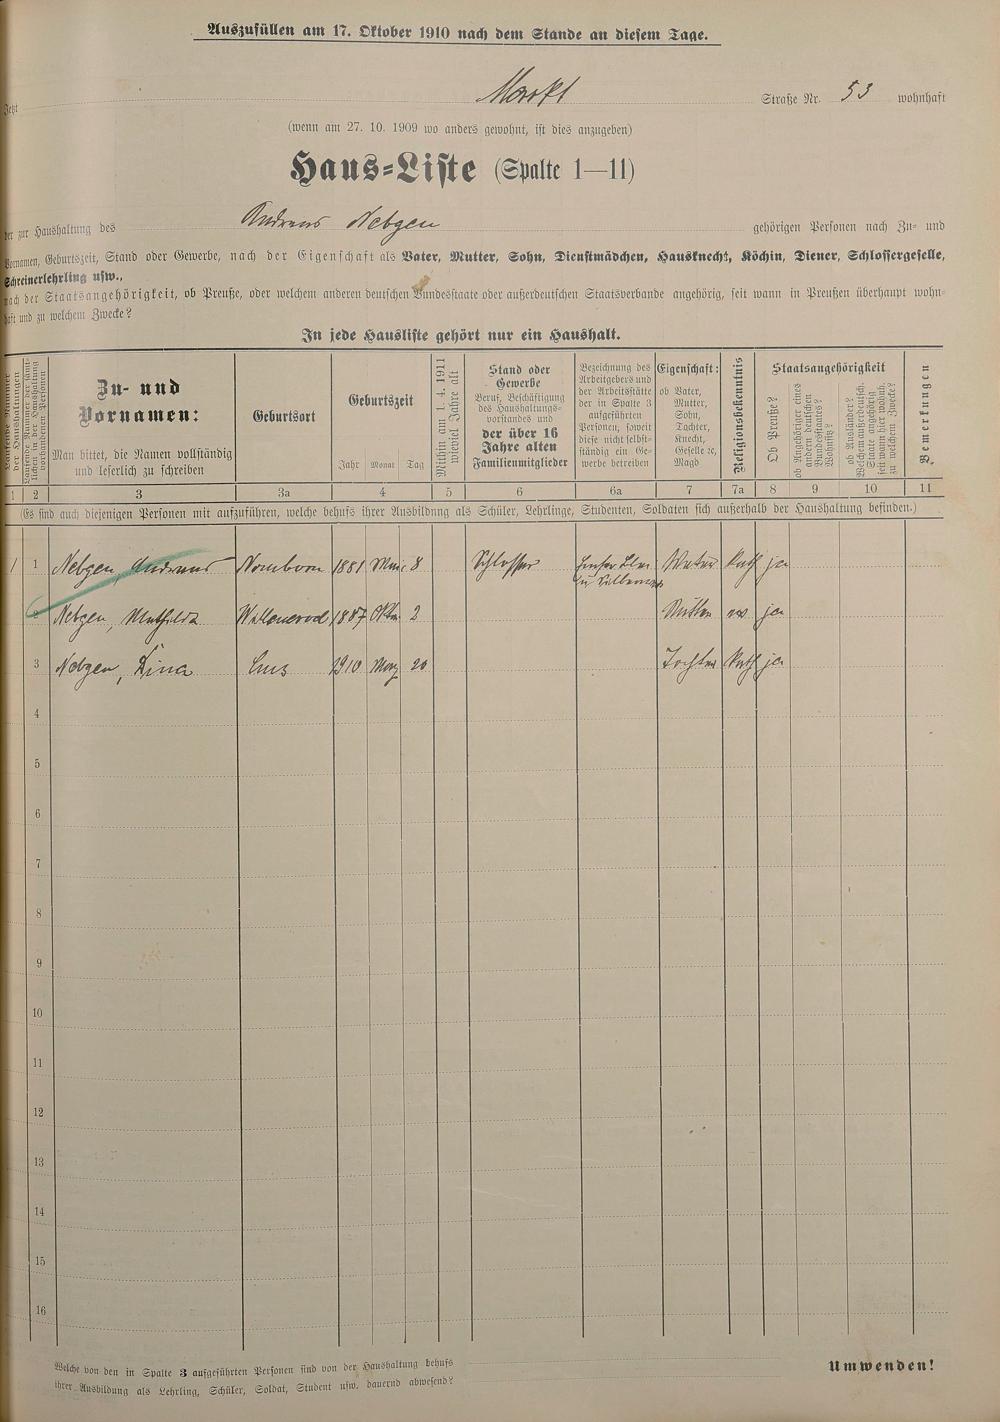 Auszufüllen am 17. Oktober 1910 nach dem Stande an diesem Tage.
Jetzt Markt Straße Nr. 53 wohnhaft
(wenn am 27. 10. 1909 wo anders gewohnt, ist dies anzugeben)
Haus-Liste (Spalte 1—11)
der zur Haushaltung des Andreas Nebgen gehörigen Personen nach Zu- und
Vornamen, Geburtszeit, Stand oder Gewerbe, nach der Eigenschaft als Vater, Mutter, Sohn, Dienstmädchen, Hausknecht, Köchin, Diener, Schlossergeselle,
Schreinerlehrling usw.,
nach der Staatsangehörigkeit, ob Preuße, oder welchem anderen deutschen Bundesstaate oder außerdeutschen Staatsverbande angehörig, seit wann in Preußen überhaupt wohn-
haft und zu welchem Zwecke?
In jede Hausliste gehört nur ein Haushalt.
Laufende Nummer der Haushaltungen
Laufende Nummer der sämt-
lichen in der Haushaltung
vorhandenen Personen
Zu- und
Vornamen:
Man bittet, die Namen vollständig
und leserlich zu schreiben
Geburtsort
Geburtszeit
Jahr Monat Tag
Mithin am 1. 4. 1911
wieviel Jahre alt
Stand oder
Gewerbe
Beruf, Beschäftigung
des Haushaltungs-
vorstandes und
der über 16
Jahre alten
Familienmitglieder
Bezeichnung des
Arbeitgebers und
der Arbeitsstätte
der in Spalte 3
aufgeführten
Personen, soweit
diese nicht selbst-
ständig ein Ge-
werbe betreiben
Eigenschaft:
ob Vater,
Mutter,
Sohn,
Tachter,
Knecht,
Geselle ec,
Magd
Religionsbekenntnis
Staatsangehörigkeit
Ob Preuße?
ob Angehöriger eines
andern deutschen
Bundesstaates?
Wohnsitz?
ob Ausländer?
Welchem außerdeutsch.
Staate angehörig
seit wann hier wohnh.
zu welchem Zwecke?
Bemerkungen
1 2 3 3a 4 5 6 6a 7 7a 8 9 10 11
(Es sind auch diejenigen Personen mit aufzuführen, welche behufs ihrer Ausbildung als Schüler, Lehrlinge, Studenten, Soldaten sich außerhalb der Haushaltung befinden.)
1 1 Nebgen, Andreas Nomborn 1881 8 Schlosser Vater kath ja
2 Nebgen, Mathilda Wallmerod 1887 2 Mutter ev ja
3 Nebgen, Lina Ems 1910 März 20 Tochter kath ja
4
5
6
7
8
9
10
11
12
13
14
15
16
Welche von den in Spalte 3 aufgeführten Personen sind von der Haushaltung behufs
ihrer Ausbildung als Lehrling, Schüler, Soldat, Student usw. dauernd abwesend?
Umwenden!